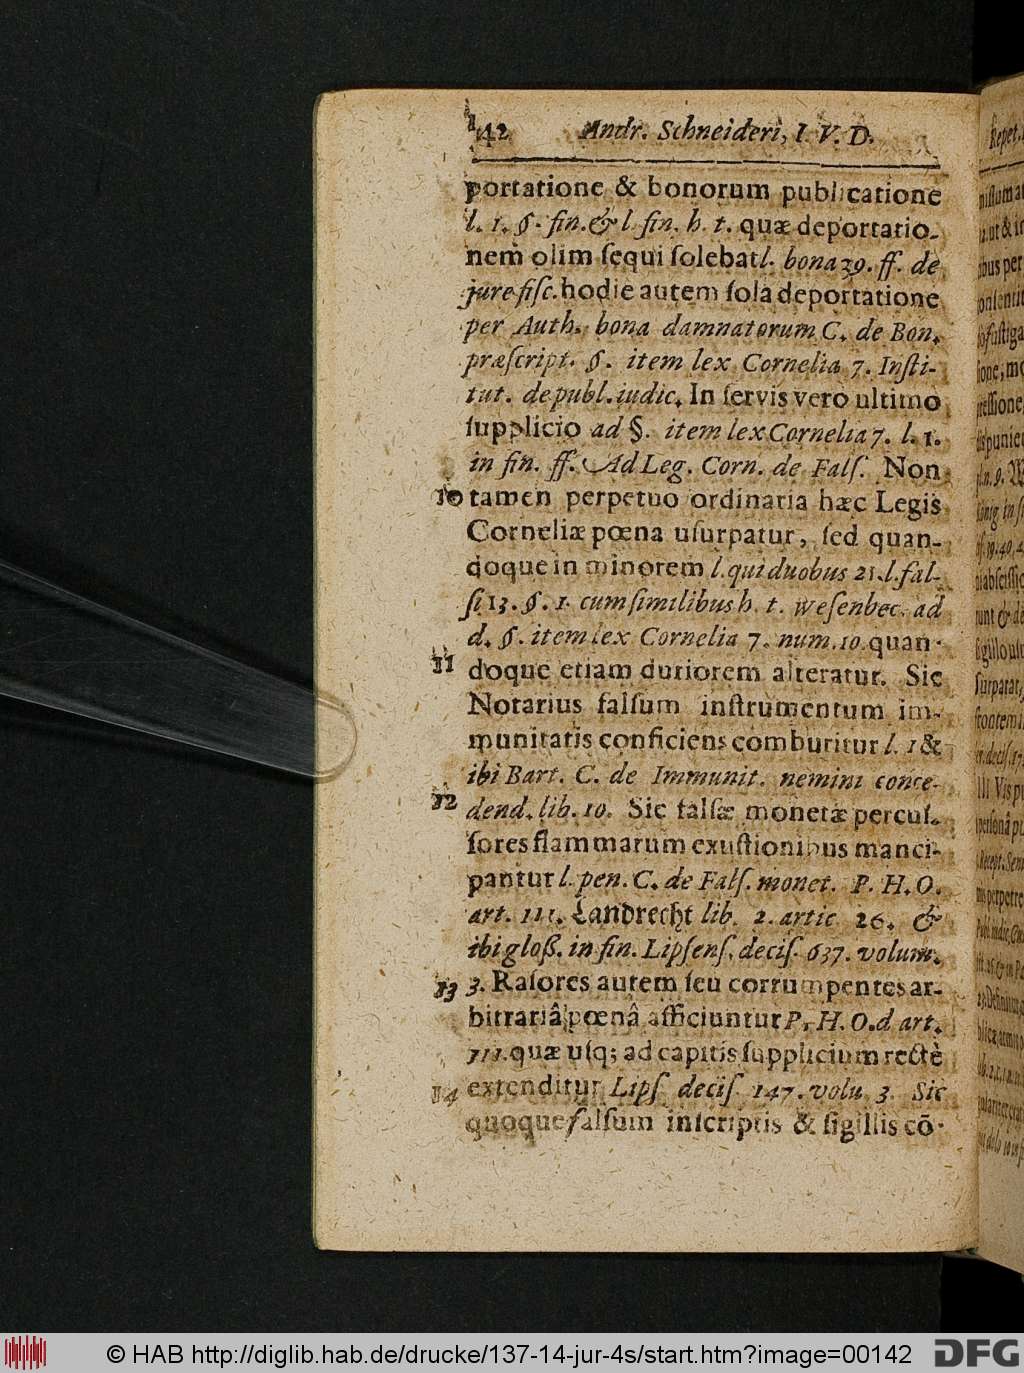 142 Andr. Schneideri, I. V. D.
portatione & bonorum publicatione
l. 1. §. fin. & l. fin. h. t. quæ deportatio-
nem olim ſequi ſolebat l. bona 39. ff. de
jure fiſc. hodie autem ſola deportatione
per Auth. bona damnatorum C. de Bon.
præſcript. §. item lex Cornelia 7. Inſti-
tut. de publ. iudic. In ſervis vero ultimo
ſupplicio ad §. item lex Cornelia 7. l. 1.
in fin. ff. Ad Leg. Corn. de Falſ. Non
10 tamen perpetuo ordinaria hæc Legis
Corneliæ pœna uſurpatur, ſed quan-
doque in minorem l. qui duobus 21. l. fal-
ſi 13. §. 1. cum ſimilibus h. t. Weſenbec. ad
d. §. item lex Cornelia 7. num. 10. quan-
11 doque etiam duriorem alteratur. Sic
Notarius falſum inſtrumentum im-
munitatis conficiens comburitur l. 1 &
ibi Bart. C. de Immunit. nemini conce-
12 dend. lib. 10. Sic falſæ monetæ percuſ-
ſores flammarum exuſtionibus manci-
pantur l. pen. C. de Falſ. monet. P. H. O.
art. 111. Landrecht lib. 2. artic 26. &
ibi gloß. in fin. Lipſenſ. deciſ. 637. volum.
13 3. Raſores autem ſeu corrumpentes ar-
bitrariâ pœnâ afficiuntur P. H. O. d art.
111. quæ uſq; ad capitis ſupplicium rectè
14 extenditur Lipſ deciſ 147. volu 3. Sic
quoque falſum inſcriptis & ſigillis cō-
© HAB http://diglib.hab.de/drucke/137-14-jur-4s/start.htm?image=00142 DFG